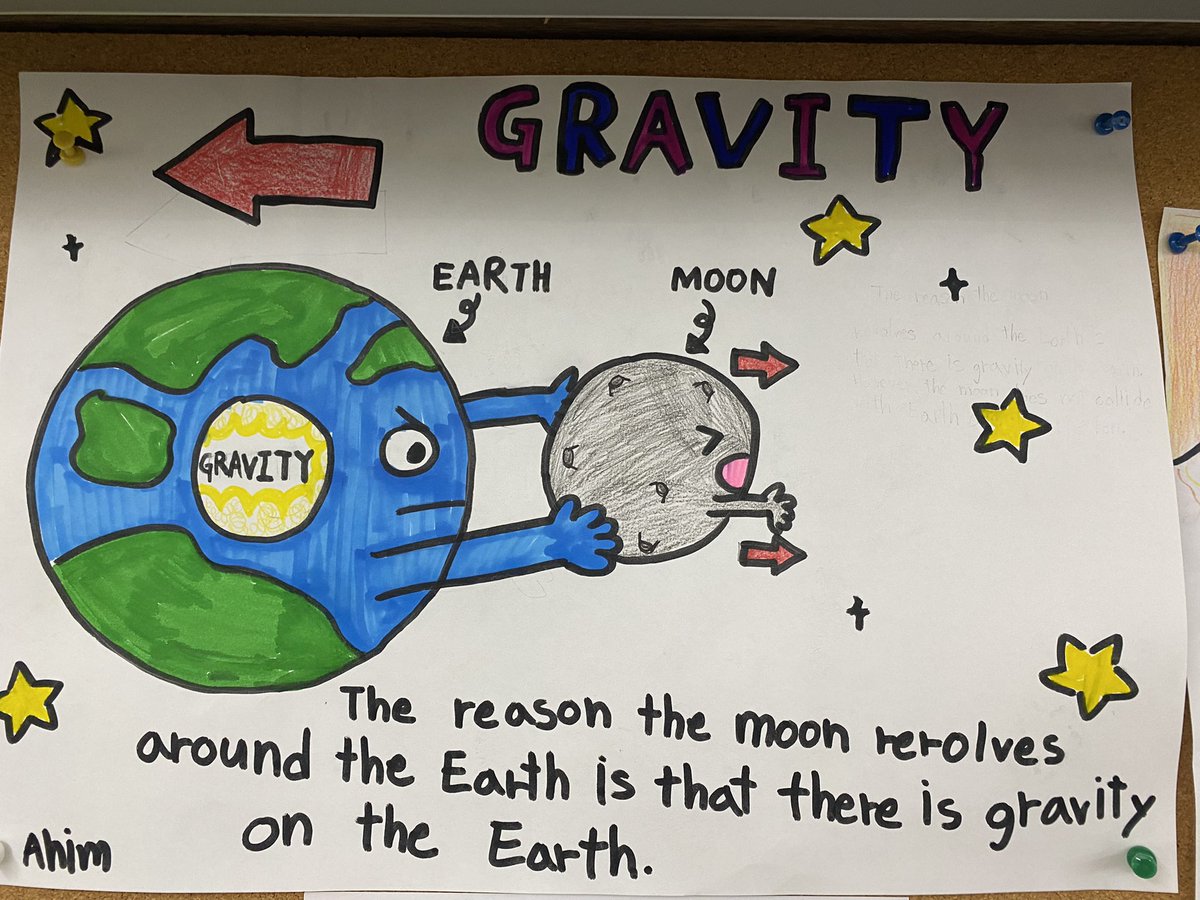 GRAVITY
EARTH
MOON
The reason the moon
around the Earth
there is gravity
the moon collide
GRAVITY
The reason the moon rerolves
around the Earth is that there is gravity
on the Earth.
Ahim